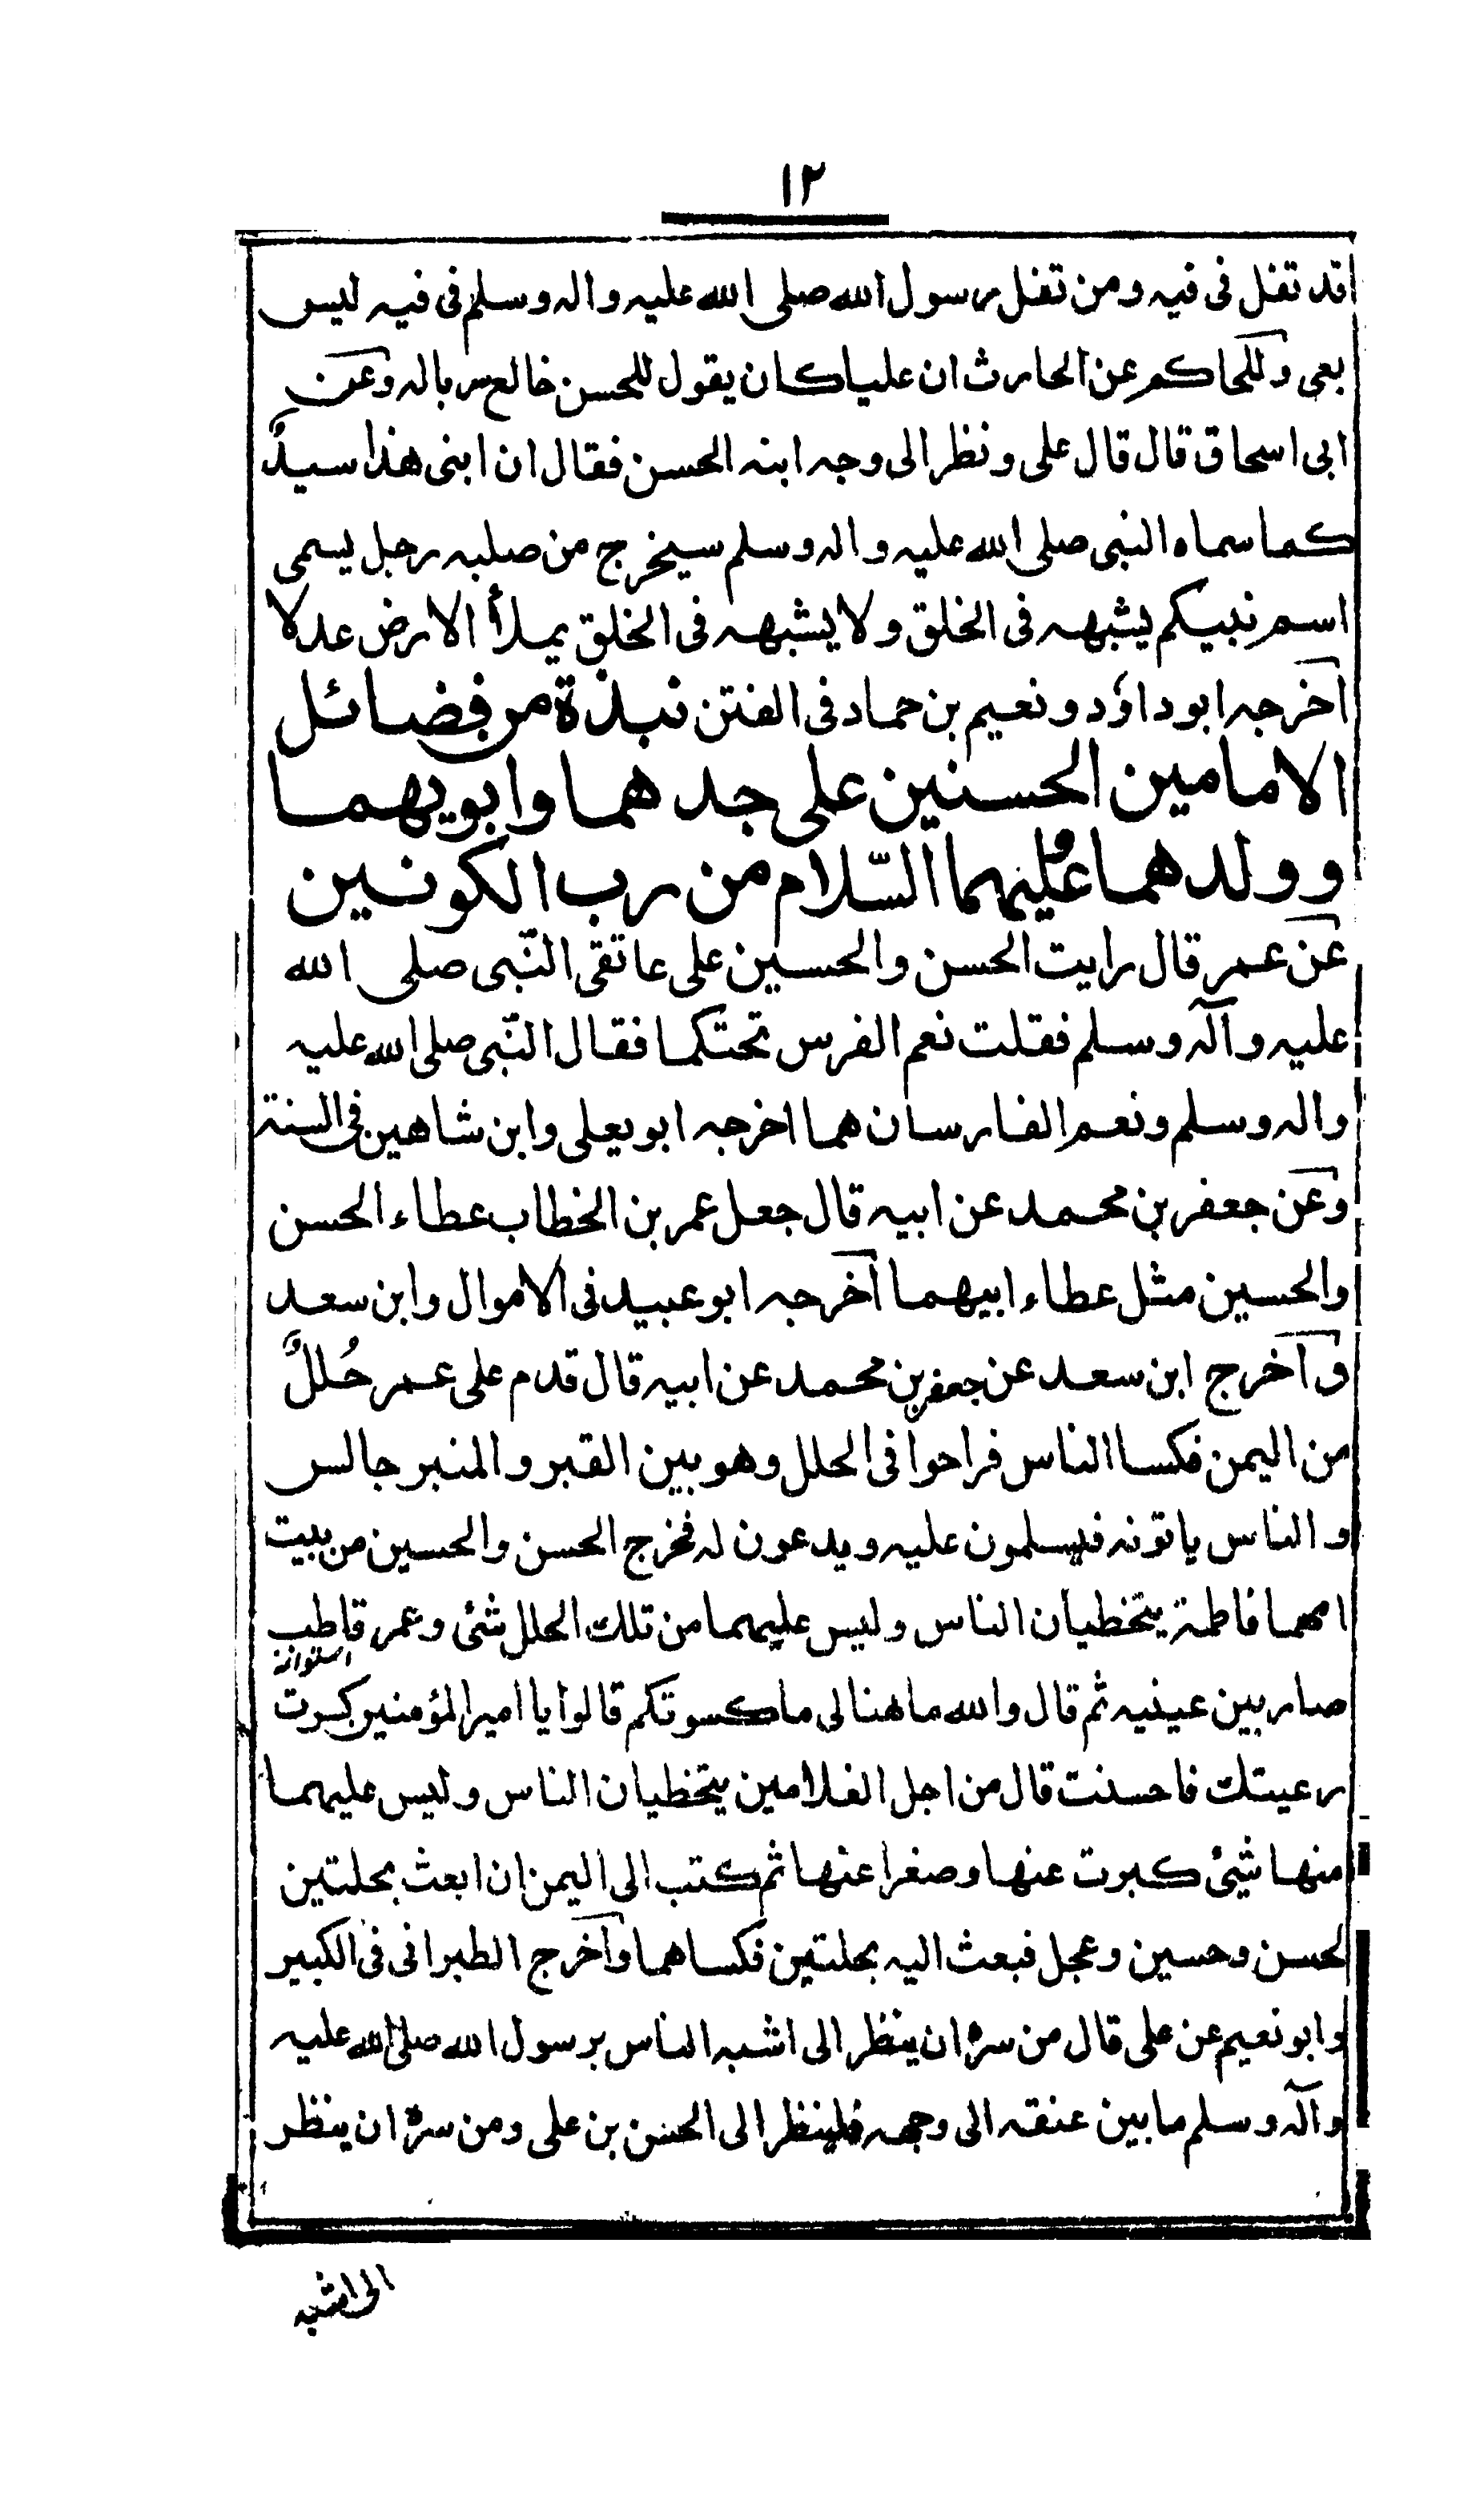 ١٢
قد تفل فى فيه ومن تفل رسول الله صلى الله عليه واله وسلم فى فيه ليس
بعى وللحاكم عن الحارث ان عليا كان يقول للحسن خالع سرباله وعن
ابى اسحاق قال قال على ونظر الى وجه ابنه الحسن فقال ان ابنى هذا سيدٌ
كما سماه النبى صلى الله عليه واله وسلم سيخرج من صلبه رجل يسمى
اسم نبيكم يشبهه فى الخلق ولا يشبهه فى الخلق يملأ الارض عدلا
اخرجه ابو داؤد ونعيم بن حماد فى الفتن نبذة من فضائل
الامامين الحسنين على جدهما وابويهما
وولدهما عليهما السّلام من رب الكونين
عن عمر قال رايت الحسن والحسين على عاتقى النّبى صلى الله
عليه وآله وسلم فقلت نعم الفرس تحتكما فقال النّبى صلى الله عليه
واله وسلم ونعم الفارسان هما اخرجه ابو يعلى وابن شاهين فى السنة
وعن جعفر بن محمد عن ابيه قال جعل عمر بن الخطاب عطاء الحسن
والحسين مثل عطاء ابيهما اخرجه ابو عبيد فى الاموال وابن سعد
واخرج ابن سعد عن جعفر بن محمد عن ابيه قال قدم على عمر حُللٌ
من اليمن فكسا الناس فراحوا فى الحلل وهو بين القبر والمنبر جالس
والناس ياتونه فيسلمون عليه ويدعون له فخرج الحسن والحسين من بيت
امهما فاطمة يتخطيان الناس وليس عليهما من تلك الحلل شئ وعمر قاطب
صار بين عينيه ثم قال والله ما هنا لى ما كسوتكم قالوا يا امير المؤمنين كسرت
رعيتك فاحسنت قال من اجل الغلامين يتخطيان الناس وليس عليهما
منها شئ كبرت عنها وصغرا عنها ثم كتب الى اليمن ان ابعث بحلتين
لحسن وحسين وعجل فبعث اليه بحلتين فكساهما واخرج الطبرانى فى الكبير
وابو نعيم عن على قال من سره ان ينظر الى اشبه الناس برسول الله صلى الله عليه
وآله وسلم ما بين عنقه الى وجهه فلينظر الى الحسن بن على ومن سره ان ينظر
الى اشبه